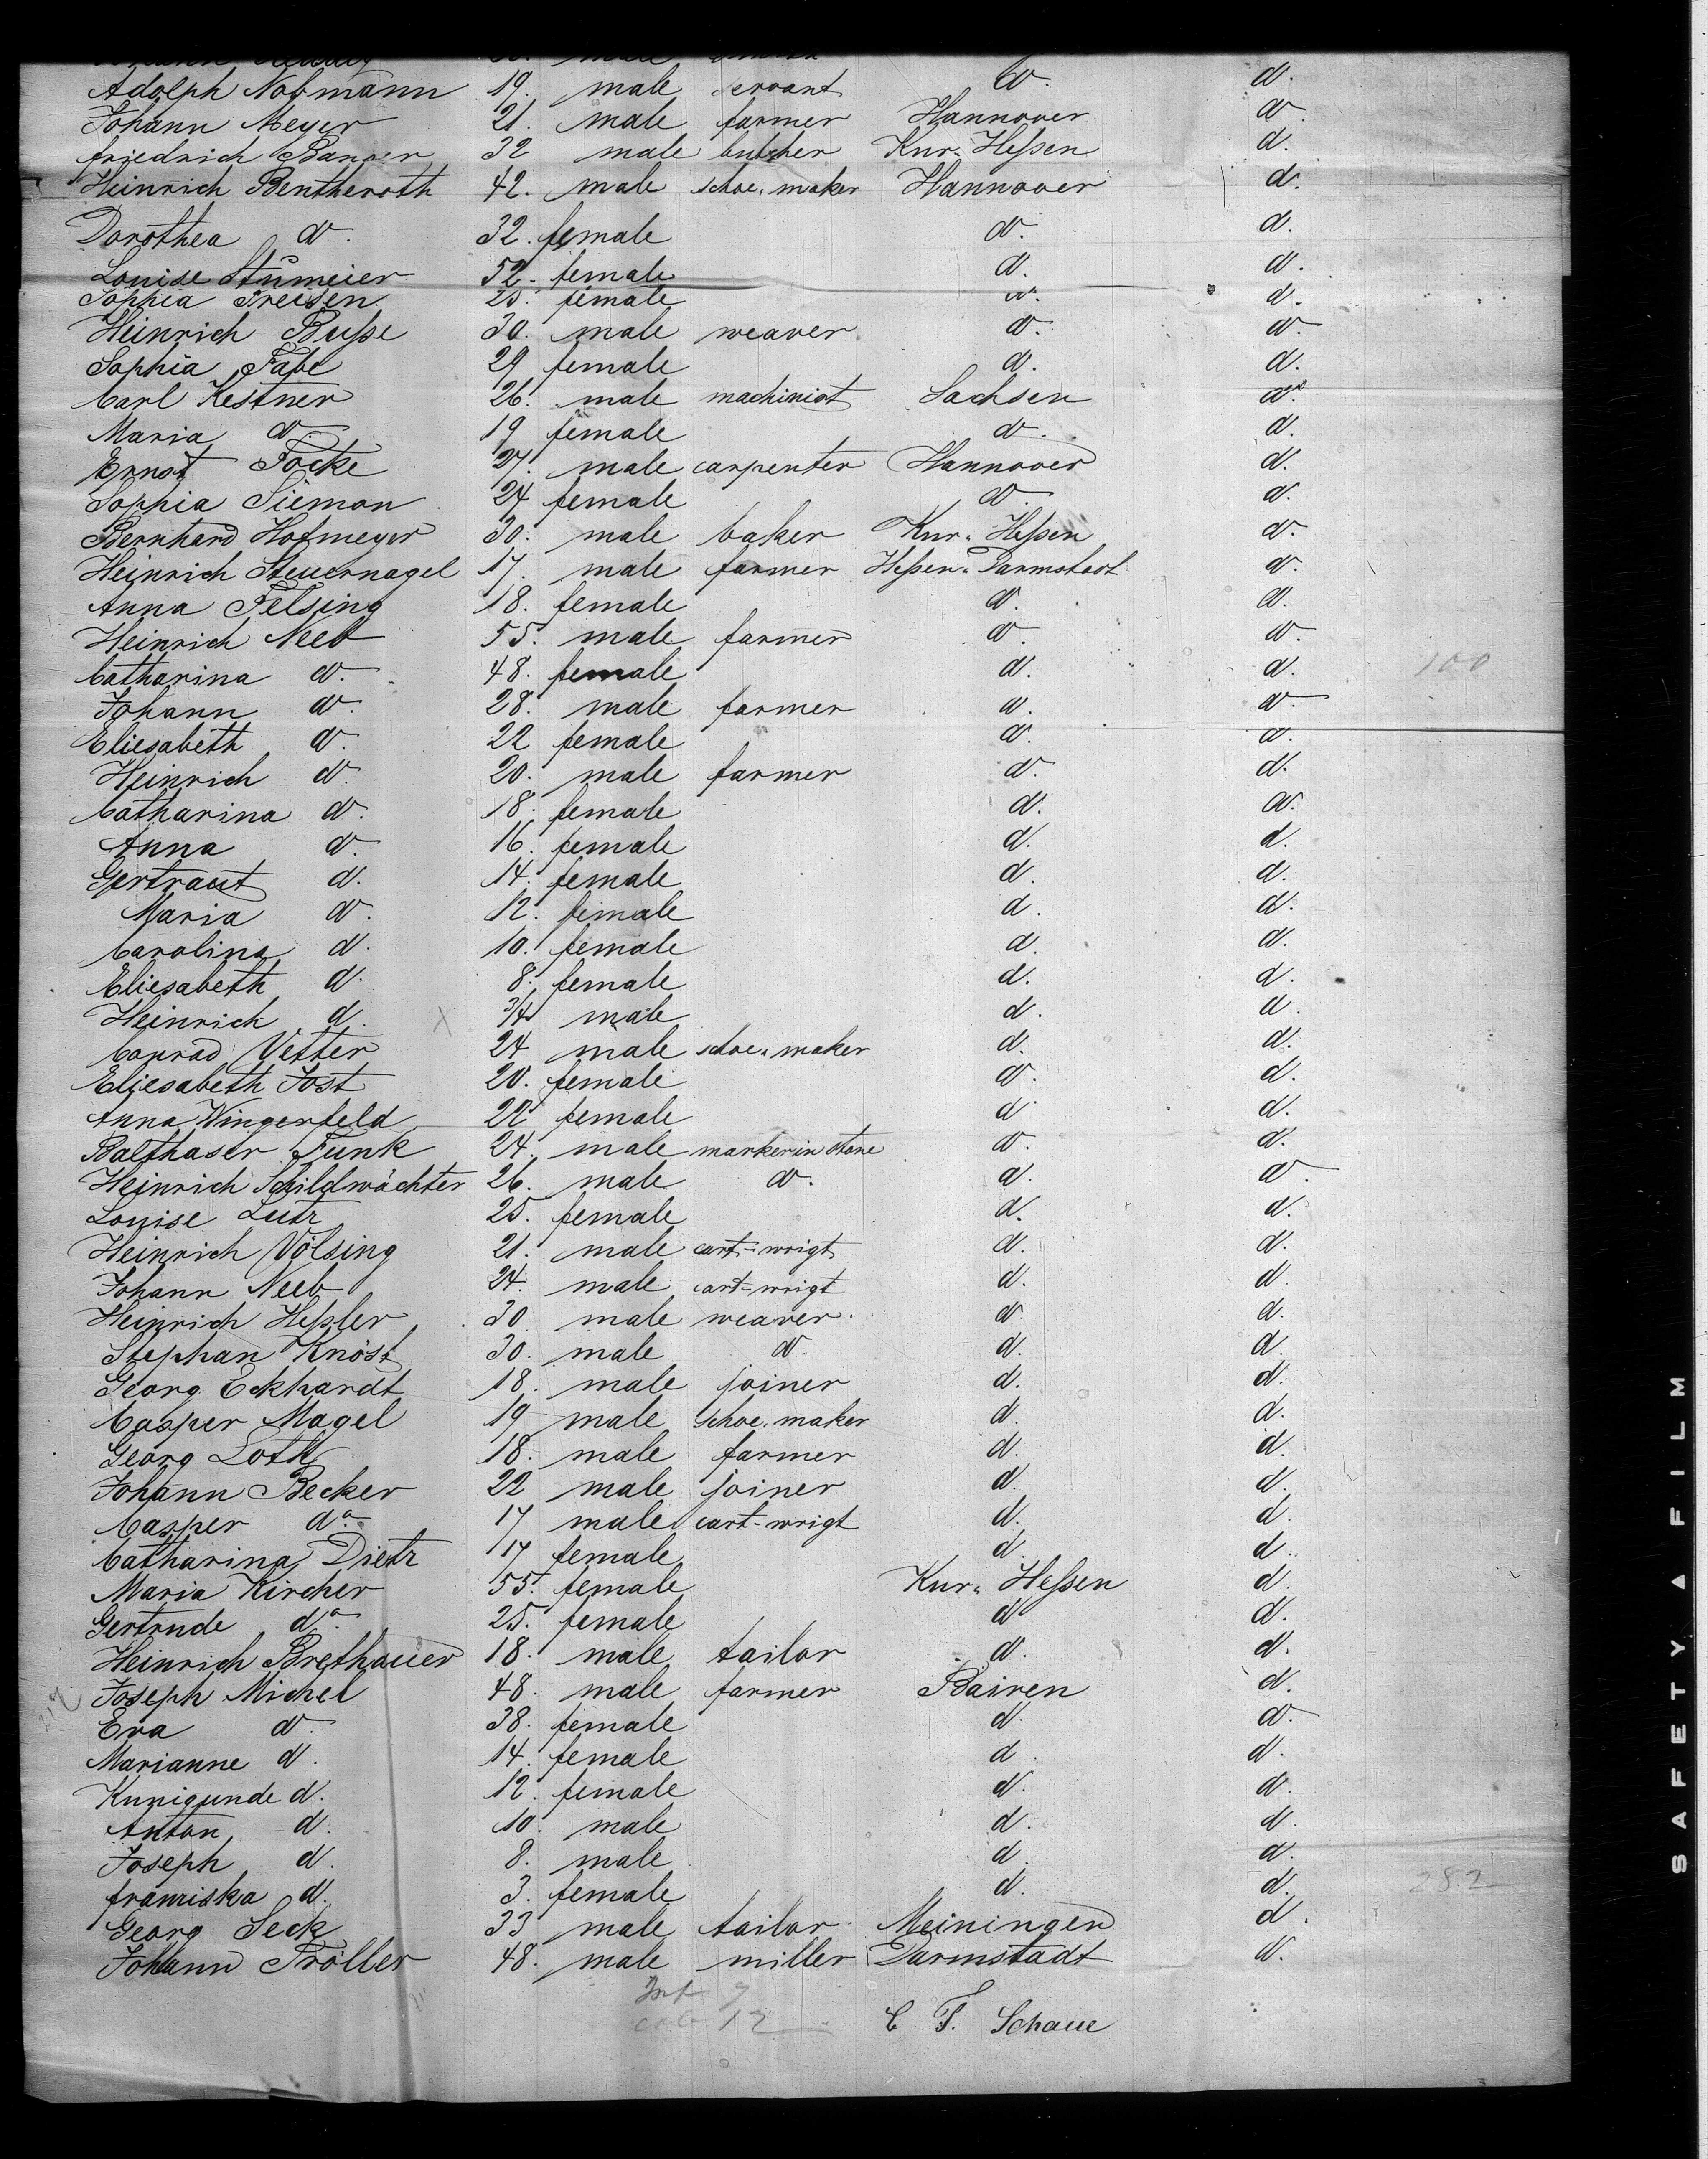 Adolph Nobmann 19. male servant d. d.
Johann Meyer 21. male farmer Hannover d.
friedrich 32 male butcher Kur- Heßen d.
Heinrich Bentheroth 42. male schoe-maker Hannover d.
Dorothea d. 32. female d. d.
Louise Stümeier 52. female d. d.
Sophia Freisen 25. female d. d.
Heinrich Buße 30. male weaver d. d.
Sophia Fabel 29 female d. d.
Carl Kestner 26. male machinist Sachsen d.
Maria d. 19 female d. d.
Ernst Focke 27. male carpenter Hannover d.
Sophia Sieman 24 female d. d.
Bernhard Hofmeyer 30. male baker Kur- Heßen d.
Heinrich Steuernagel 17. male farmer Heßen-Darmstadt d.
Anna Felsing 18. female d. d.
Heinrich Neeb 55. male farmer d. d.
Catharina d. 48. female d. d. 100
Johann d. 28. male farmer d. d.
Eliesabeth d. 22 female d. d.
Heinrich d. 20. male farmer d. d.
Catharina d. 18. female d. d.
Anna d. 16. female d. d.
Gertraut d. 14. female d. d.
Maria d. 12. female d. d.
Carolina d. 10. female d. d.
Eliesabeth d. 8. female d. d.
Heinrich d. X 3/4 male d. d.
Conrad Vetter 24 male schoe-maker d. d.
Eliesabeth Jost 20. female d. d.
Anna Wingerfeld 22 female d. d.
Balthaser Funk 24. male marker in stone d. d.
Heinrich Schildwächter 26. male d. d. d.
Louise Lutz 25. female d. d.
Heinrich Völsing 21. male cart-wrigt d. d.
Johann Neeb 24. male cart-wrigt d. d.
Heinrich Heßler 30 male weaver. d. d.
Stephan Knöst 30. male d. d. d.
Georg Eckhardt 18. male joiner d. d.
Casper Magel 19 male schoe-maker d. d.
Georg Loth 18. male farmer d. d.
Johann Becker 22 male joiner d. d.
Casper do 17 male cart-wrigt d. d.
Catharina Dietz 17 female d. d.
Maria Kircher 55. female Kur- Heßen d.
Gertrude do 25. female d. d.
Heinrich Brethauer 18. male tailor d. d.
Joseph Michel 48. male farmer Bairen d.
Eva d. 38. female d. d.
Marianne d. 14. female d. d.
Kunigunde d. 12. female d. d.
Anton d. 10. male d. d.
Joseph d. 8. male d. d.
franziska d. 3. female d. d. 282
Georg Seck 33 male tailor. Meiningen d.
Johann Tröller 48. male miller Darmstadt d.
Inf 9
12
C F. Schaue
SAFETY ▲ FILM